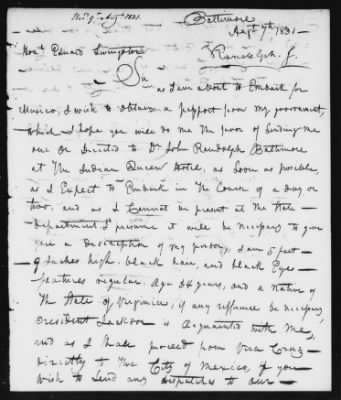 Rec'd 9th Augt 1831.
Baltimore
Augt 7th 1831
Randolph, J.
Honl. Edward Livingston
Sir
as I am about to Embark for
Mexico, I wish to obtain a passport from my government,
which I hope you will do me the favor of sending me
one or Directed to Dr John Randolph Baltimore
at The Indian Queen Hotel, as soon as possible,
as I Expect to Embark in The Course of a day or
two, and as I Cannot be present at The State
Department I presume it will be necessary to give
you a Description of my person, I am 5 feet
9 Inches high, black hair, and black Eyes
features regular. Age 34 years, and a native of
The State of Virginia, if any refference be necessary,
President Jackson is Acquainted with me,
and as I shall proceed from Vera Cruz
Directly to The City of Mexico, if you
wish to send any dispatches to our